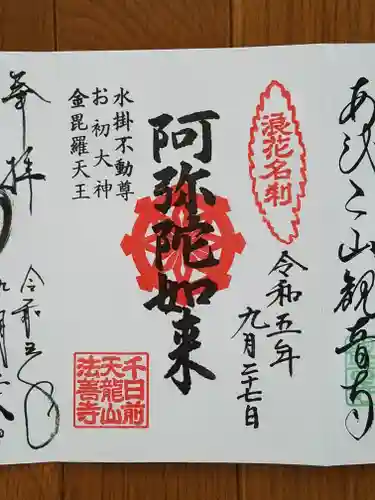 あびこ山観音寺
浪花名刹
令和五年
九月二十七日
阿弥陀如来
水掛不動尊
お初大神
金毘羅天王
千日前
天龍山
法善寺
奉拝
令和五年